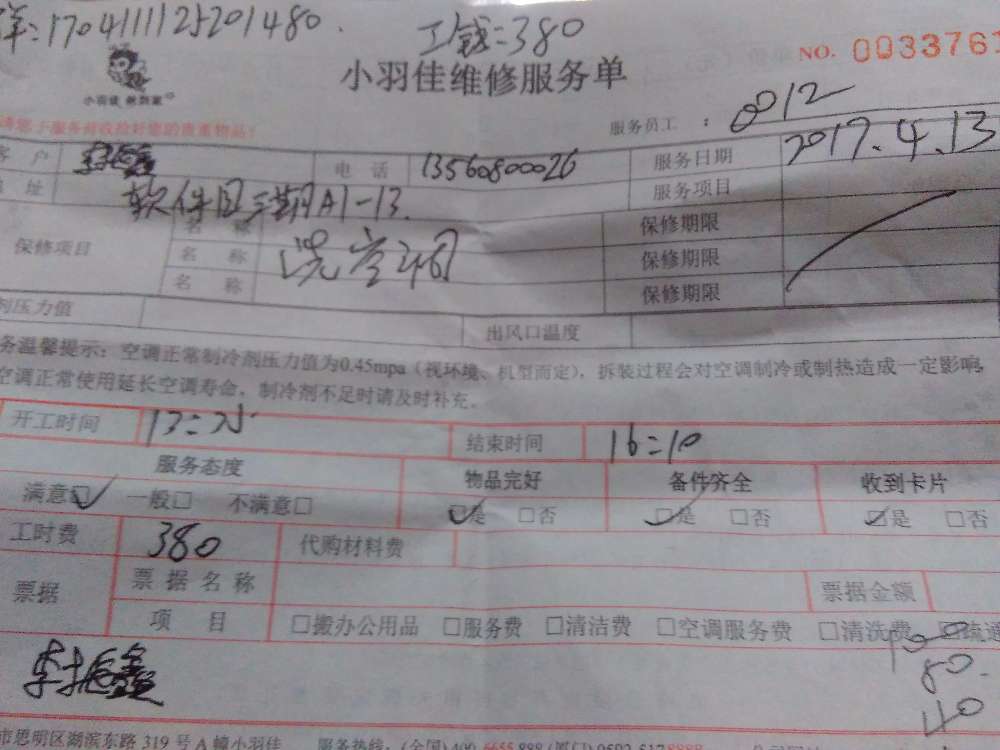 17041111251201480. 工钱:380
小羽佳维修服务单
NO. 0033761
服务员工 : 0012
户 电话 13560800026 服务日期 2017.4.13
址 软件园三期A1-13 服务项目
保修项目 名称 洗空调 保修期限
名称 保修期限
名称 保修期限
剂压力值 出风口温度
务温馨提示: 空调正常制冷剂压力值为0.45mpa (视环境、机型而定), 拆装过程会对空调制冷或制热造成一定影响,
空调正常使用延长空调寿命, 制冷剂不足时请及时补充。
开工时间 结束时间 16:10
服务态度 物品完好 备件齐全 收到卡片
满意□ 一般□ 不满意□ □是 □否 □是 □否 □是 □否
工时费 380 代购材料费
票据 票据名称 票据金额
项目 □搬办公用品 □服务费 □清洁费 □空调服务费 □清洗费 □疏通
80.
40
李振鑫
市思明区湖滨东路 319 号 A 幢小羽佳 服务热线: (全国) 400